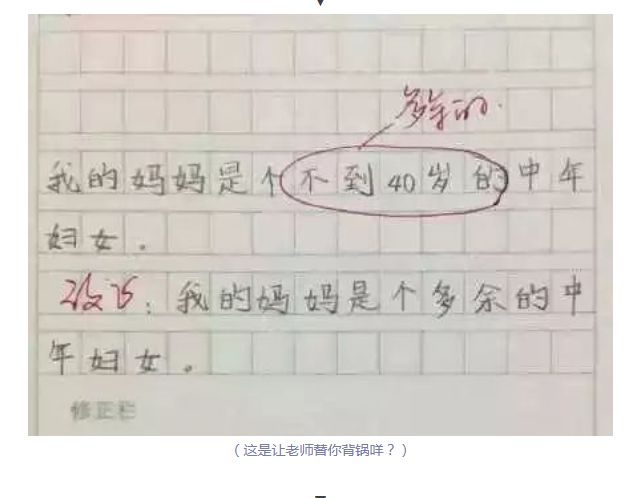 多余的.
我的妈妈是个不到40岁的中年
妇女.
改巧:我的妈妈是个多余的中
年妇女。
修正栏
(这是让老师替你背锅咩?)